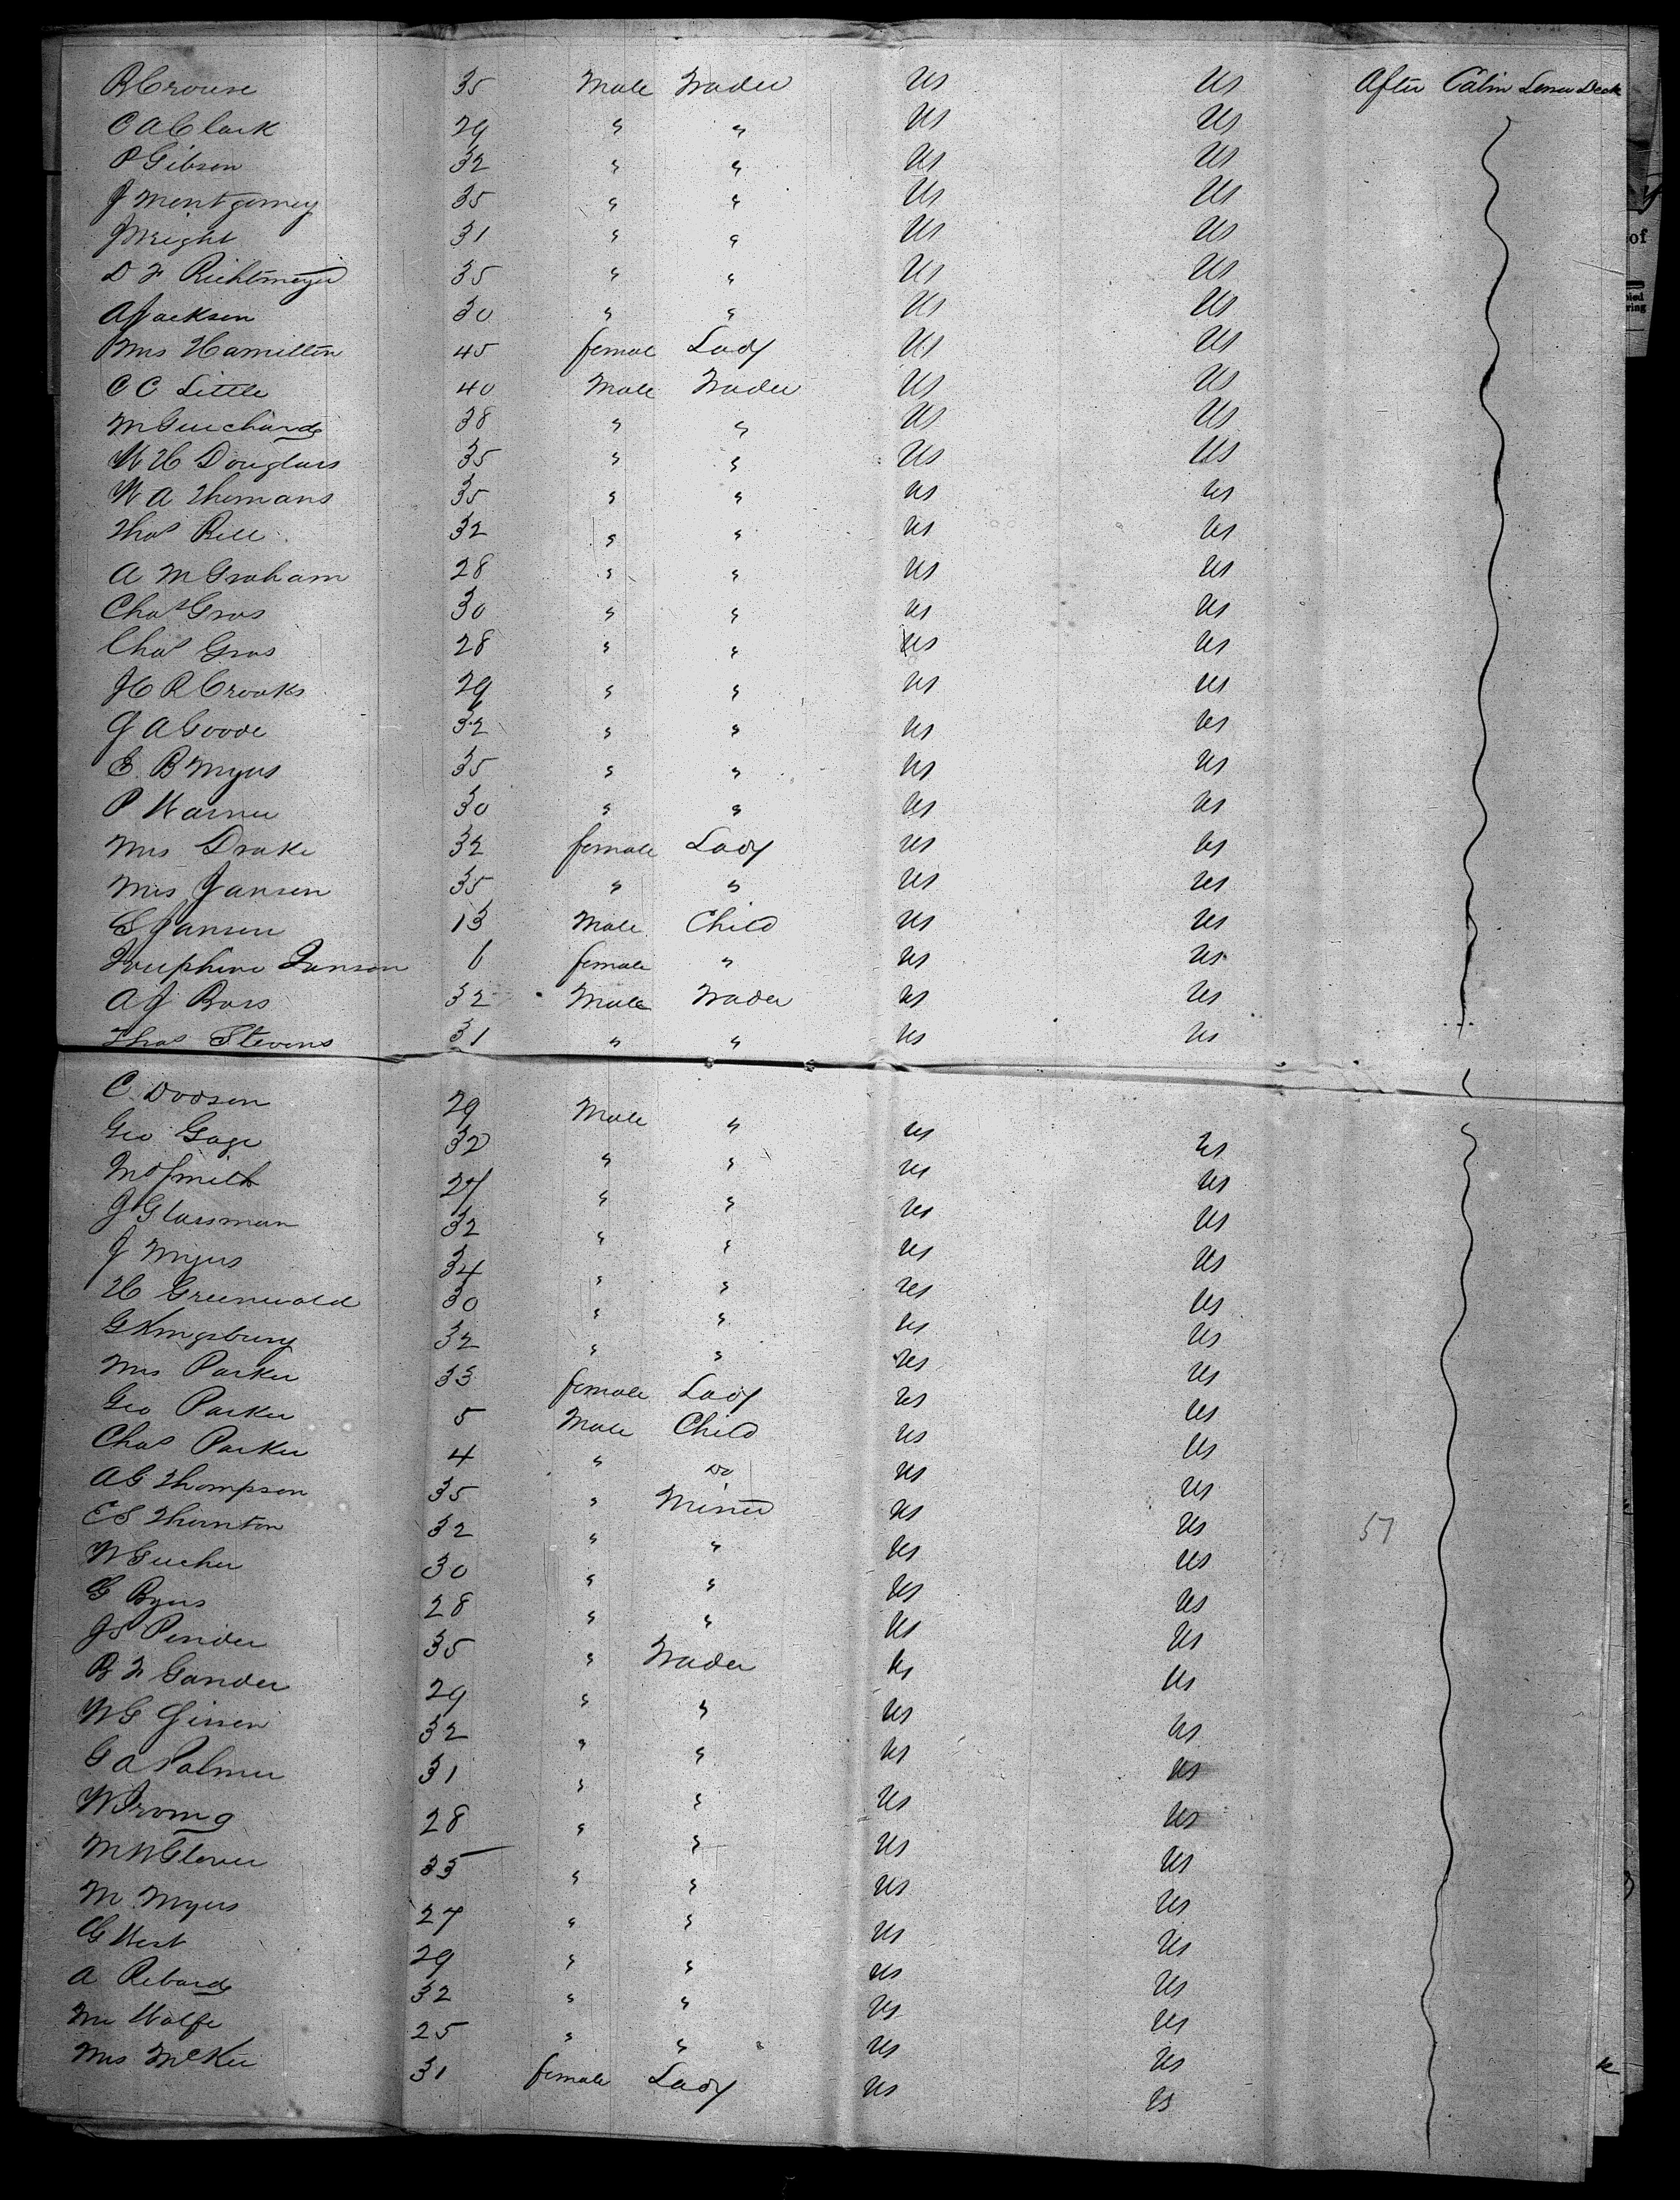 B Crouse 35 Male Trader US US After Cabin Lower Deck
C A Clark 29 " " US US
P Gibson 32 " " US US
J Montgomey 35 " " US US
J Wright 31 " " US US
D F Richtmeyer 35 " " US US
A Jackson 30 " " US US
Mrs Hamilton 45 female Lady US US
C C Little 40 Male Trader US US
M Guichard 38 " " US US
W H Douglass 35 " " US US
W A Thomans 35 " " US US
Thos Bell 32 " " US US
A M Graham 28 " " US US
Chas Gros 30 " " US US
Chas Gros 28 " " US US
H R Crooks 29 " " US US
J A Goode 32 " " US US
E. B Myers 35 " " US US
P Warner 30 " " US US
Mrs Drake 32 female Lady US US
Mrs Jansen 35 " " US US
S Jansen 13 Male Child US US
Josephine Janson 6 female " US US
A J Bors 32 Male Trader US US
Thos Stevens 31 " " US US
C. Dodson 29 Male " US US
Geo Gage 32 " " US US
Smith 27 " " US US
J Glassman 32 " " US US
J Myers 34 " " US US
H Greenwald 30 " " US US
G Kingsbury 32 " " US US
Mrs Parker 33 female Lady US US
Geo Parker 5 Male Child US US
Chas Parker 4 " Do US US
A G Thompson 35 " Miner US US
E S Thornton 32 " " US US 57
W 30 " " US US
G Byers 28 " " US US
J S Pender 35 " Trader US US
B F Gander 29 " " US US
W G 32 " " US US
G A Palmer 31 " " US US
W 28 " " US US
M W Glover 35 " " US US
M Myers 27 " " US US
G West 29 " " US US
A Ribard 32 " " US US
Mr Wolfe 25 " " US US
Mrs McKee 31 female Lady US US
of